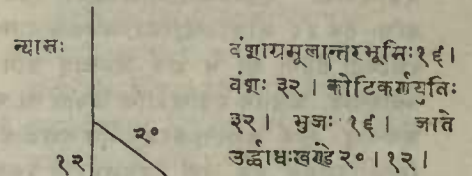 न्यासः
वंशाग्रमूलान्तरभूमिः १६ ।
वंशः ३२ । कोटिकर्णयुतिः
३२ । भुजः १६ । जाते
ऊर्द्धाधःखण्डे २० । १२ ।
२०
१२